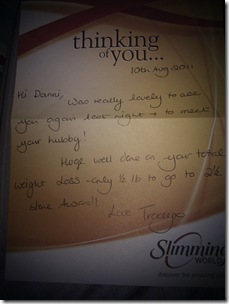 thinking
of you...
10th Aug 2011
Hi Danni,
Was really lovely to see
you again last night & to meet
your hubby!
Huge well done on your total
weight loss - only ½ lb to go to 2½
stone Award!!
Love
Slimming
WORLD
discover the amazing